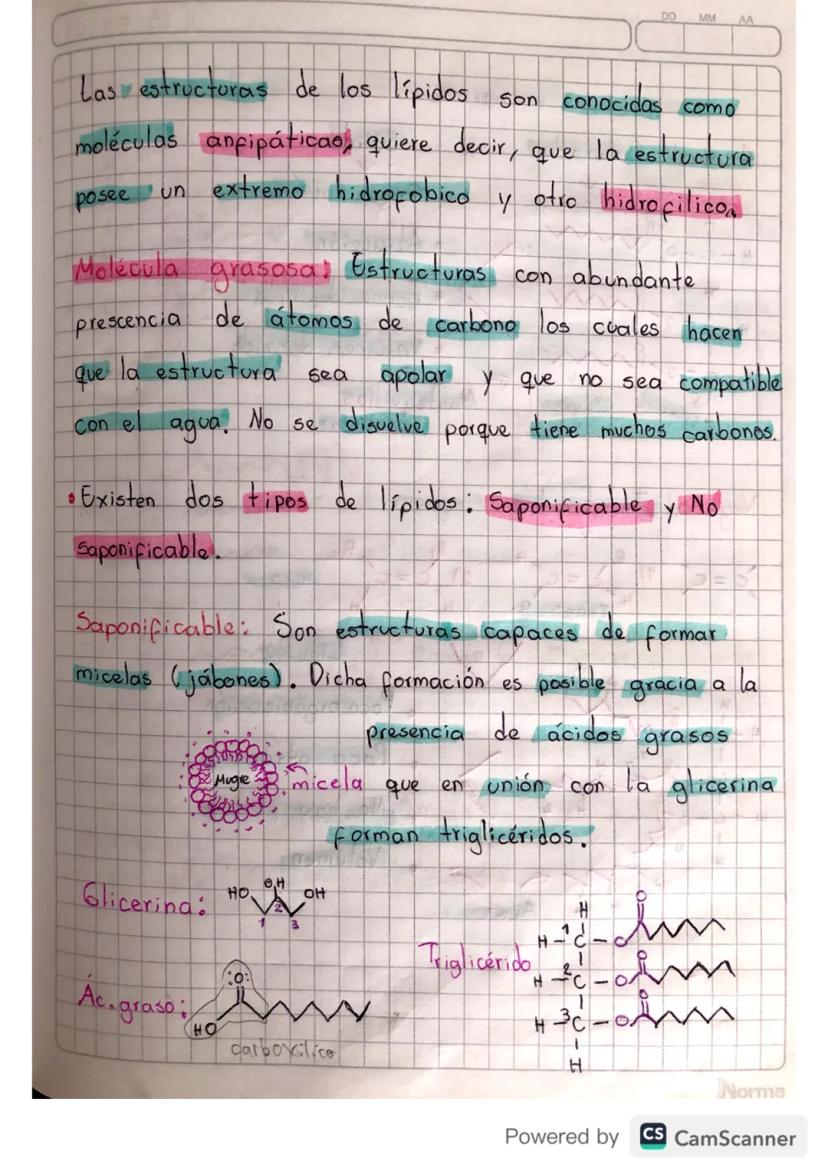 DD MM AA
Las estructuras de los lípidos son conocidas como
moléculas anfipáticas, quiere decir, que la estructura
posee un extremo hidrofóbico y otro hidrofilico.
Molécula grasosa: Estructuras con abundante
prescencia de átomos de carbono los cuales hacen
que la estructura sea apolar y que no sea compatible
con el agua. No se disuelve porque tiene muchos carbonos.
• Existen dos tipos de lípidos: Saponificable y No
saponificable.
Saponificable: Son estructuras capaces de formar
micelas (jábones). Dicha formación es posible gracia a la
presencia de ácidos grasos
Mugre micela que en unión con la glicerina
forman triglicéridos.
Glicerina: HO OH OH
1 2 3
Triglicérido
H
H - 1C - O O
H - 2C - O O
H - 3C - O O
H
Ác. graso: :O:
HO
carboxilico
Norma
Powered by CS CamScanner